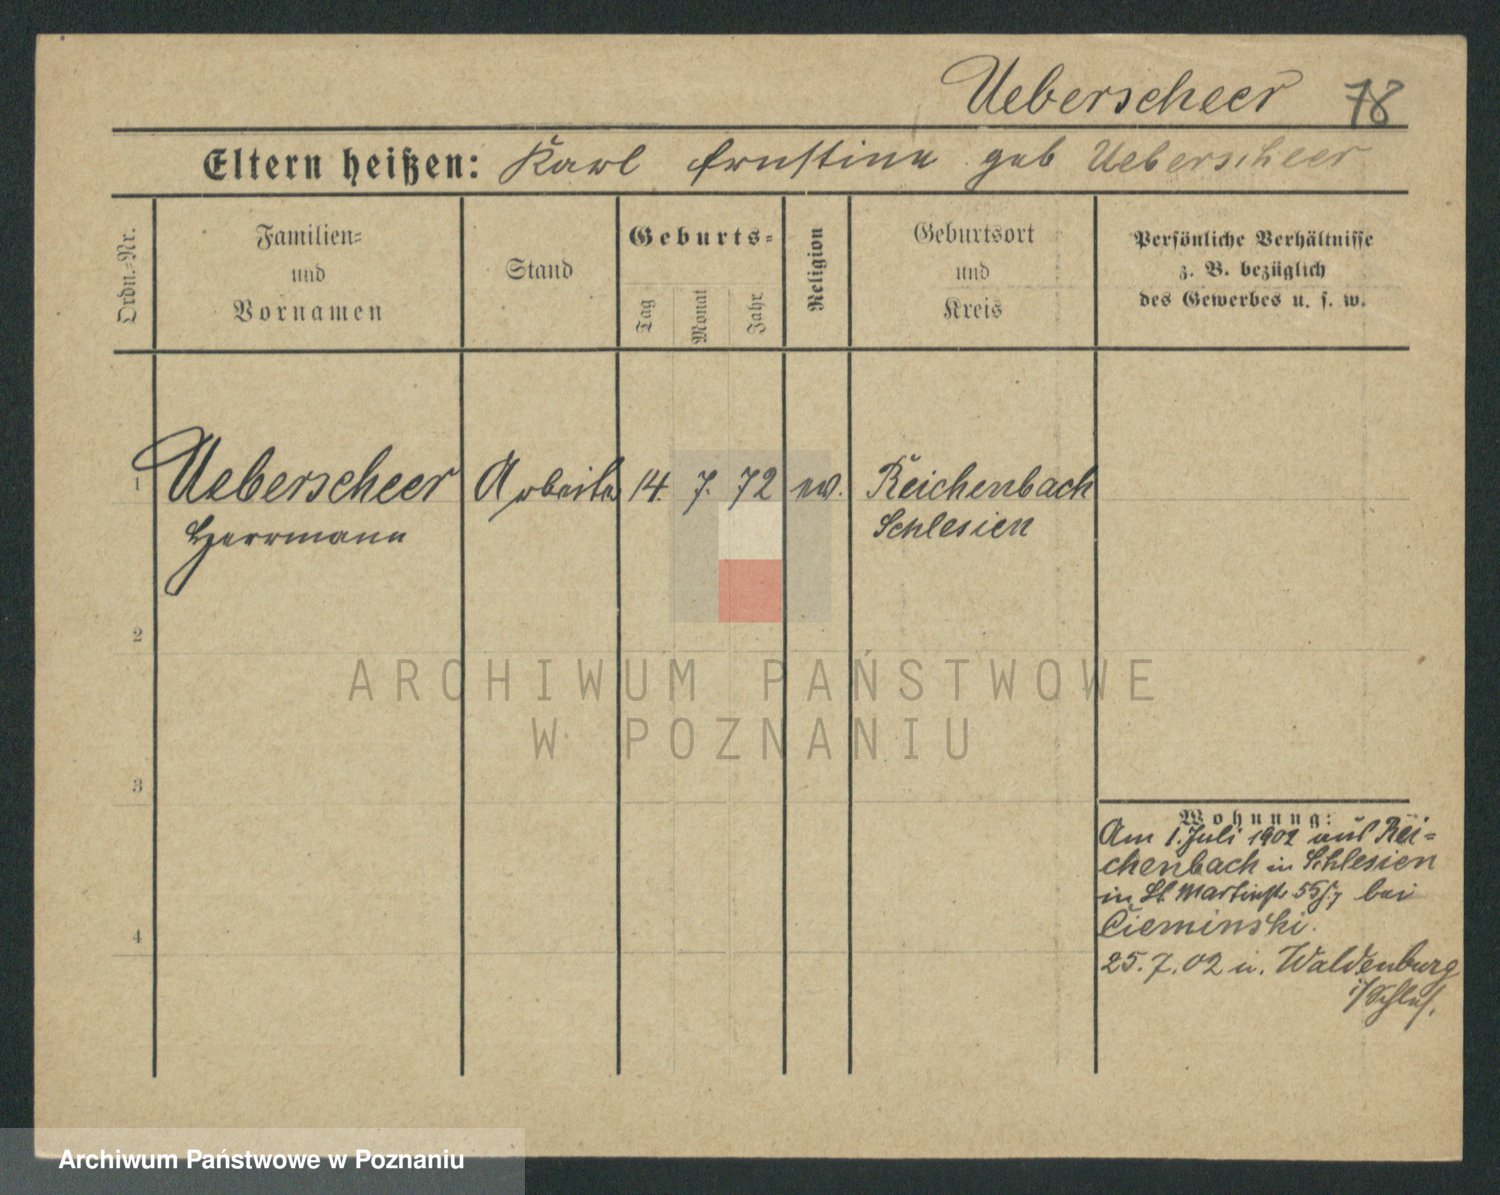 Ueberscheer 78
Eltern heißen: Karl Ernstine geb Ueberscheer
Ordn.=Nr.
Familien=
und
Vornamen
Stand
Geburts=
Tag
Monat
Jahr
Religion
Geburtsort
und
Kreis
Persönliche Verhältnisse
z. B. bezüglich
des Gewerbes u. s. w.
1 Ueberscheer Arbeiter 14. 7. 72 ev. Reichenbach
Herrmann Schlesien
2
3
4
Wohnung:
Am 1. Juli 1902 aus Rei=
chenbach in Schlesien
in St. Martinstr 55/7 bei
Cieminski.
25.7.02 n. Waldenburg
i/Schles.
ARCHIWUM PAŃSTWOWE
W POZNANIU
Archiwum Państwowe w Poznaniu